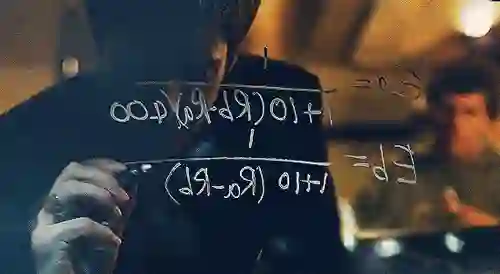 1
Ea =
1+10 (Rb-Ra)/400
1
Eb =
1+10 (Ra-Rb)